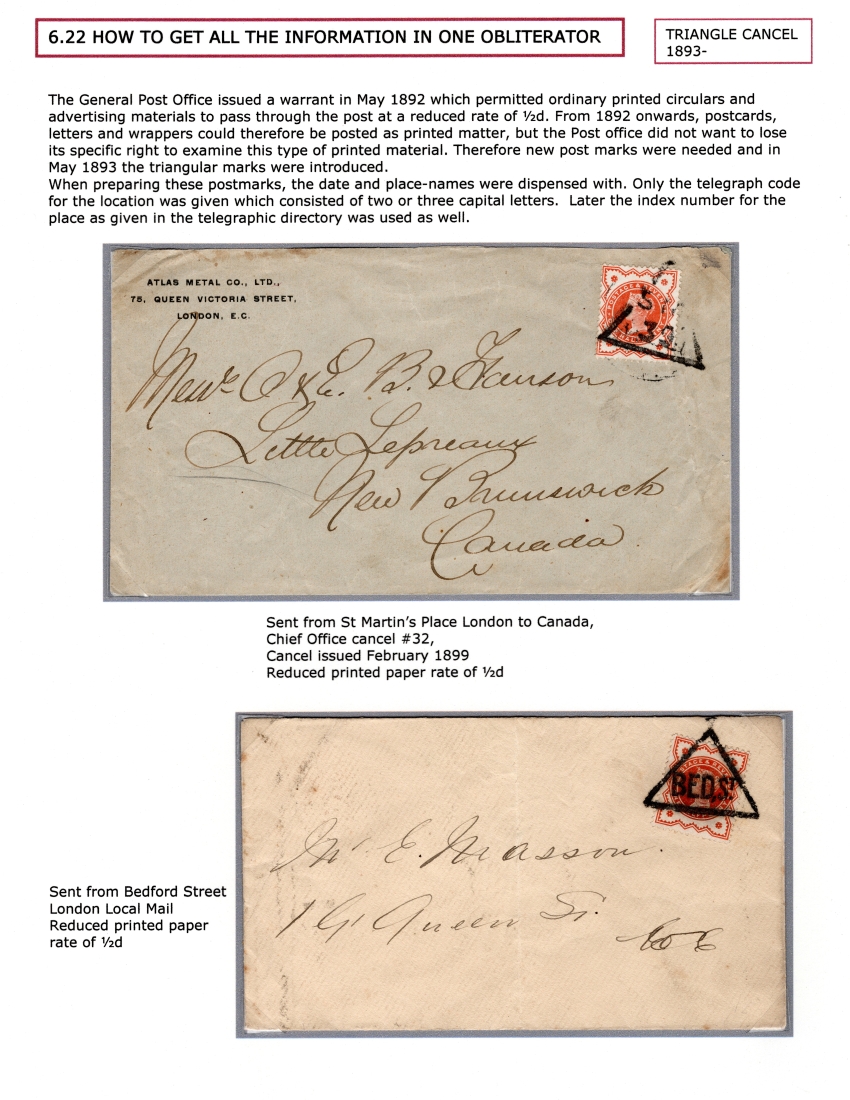 6.22 HOW TO GET ALL THE INFORMATION IN ONE OBLITERATOR
TRIANGLE CANCEL
1893-
The General Post Office issued a warrant in May 1892 which permitted ordinary printed circulars and
advertising materials to pass through the post at a reduced rate of ½d. From 1892 onwards, postcards,
letters and wrappers could therefore be posted as printed matter, but the Post office did not want to lose
its specific right to examine this type of printed material. Therefore new post marks were needed and in
May 1893 the triangular marks were introduced.
When preparing these postmarks, the date and place-names were dispensed with. Only the telegraph code
for the location was given which consisted of two or three capital letters.  Later the index number for the
place as given in the telegraphic directory was used as well.
ATLAS METAL CO., LTD.,
75, QUEEN VICTORIA STREET,
LONDON, E.C.
POSTAGE &
Messrs O & E. B. & Hanson
Little Lepreaux
New Brunswick
Canada
Sent from St Martin's Place London to Canada,
Chief Office cancel #32,
Cancel issued February 1899
Reduced printed paper rate of ½d
BED.ST
Mr E. Masson.
19 Queen St.
Sent from Bedford Street
London Local Mail
Reduced printed paper
rate of ½d